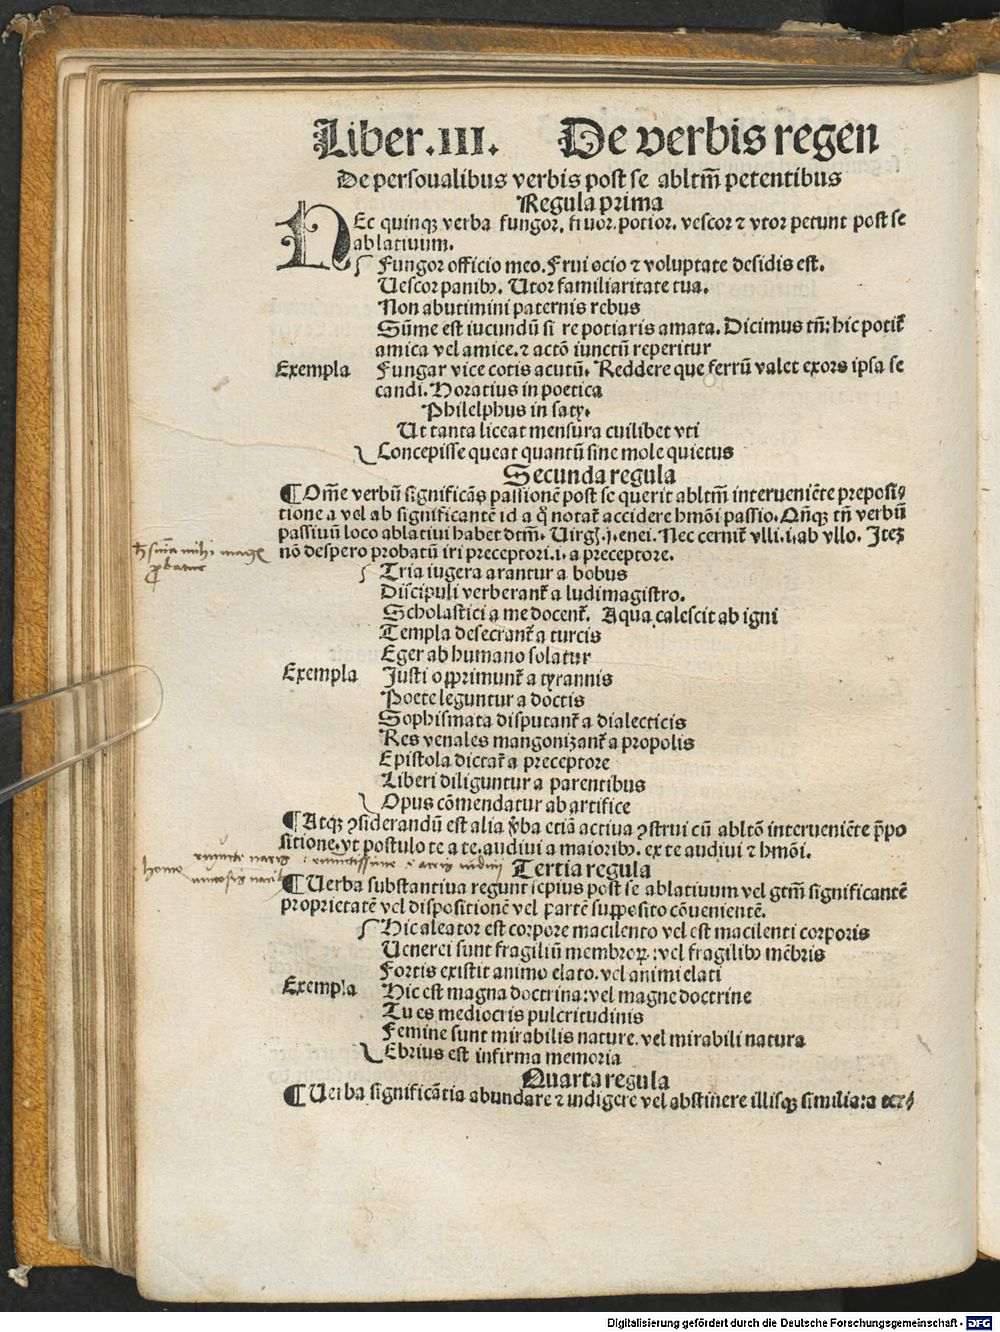 Liber.III. De verbis regen
De persoualibus verbis post se abltm̄ petentibus
Regula prima
HEc quinqꝫ verba fungor. fruor. potior. vescor ⁊ vtor petunt post se
ablatiuum.
Fungor officio meo. Frui ocio ⁊ voluptate desidis est.
Uescor panibꝰ. Utor familiaritate tua.
Non abutimini paternis rebus
Sūme est iucundū si re potiaris amata. Dicimus tn̄: hic potit᷑
amica vel amice. ⁊ actō iunctū reperitur
Exempla Fungar vice cotis acutū. Reddere que ferrū valet exors ipsa se
candi. Horatius in poetica
Philelphus in satꝝ.
Ut tanta liceat mensura cuilibet vti
Concepisse queat quantū sine mole quietus
Secunda regula
¶ Om̄e verbū significās passionē post se querit abltm̄ interueniēte preposi⸗
tione a vel ab significantē id a qͦ notat᷑ accidere hmōi passio. Qn̄qꝫ tn̄ verbū
passiuū loco ablatiui habet dtm̄. Uirgꝭ. j. enei. Nec cernit᷑ vlli. i. ab vllo. Iteꝫ
nō despero probatū iri preceptori. i. a preceptore.
Tria iugera arantur a bobus
Discipuli verberant᷑ a ludimagistro.
Scholastici a me docent᷑. Aqua calescit ab igni
Templa desecrant᷑ a turcis
Eger ab humano solatur
Exempla Iusti opprimunt᷑ a tyrannis
Poete leguntur a doctis
Sophismata disputant᷑ a dialecticis
Res venales mangonizant᷑ a propolis
Epistola dictat᷑ a preceptore
Liberi diliguntur a parentibus
Opus cōmendatur ab artifice
¶ Atqꝫ ꝯsiderandū est alia v̓ba etiā actiua ꝯstrui cū abltō interueniēte p̄po
sitione. vt postulo te a te. audiui a maioribꝰ. ex te audiui ⁊ hmōi.
Tertia regula
¶ Uerba substantiua regunt sepius post se ablatiuum vel gtm̄ significantē
proprietatē vel dispositionē vel partē supposito cōuenientē.
Hic aleator est corpore macilento vel est macilenti corporis
Uenerei sunt fragiliū membroꝝ: vel fragilibꝰ mēbris
Fortis existit animo elato. vel animi elati
Exempla Hic est magna doctrina: vel magne doctrine
Tu es mediocris pulcritudinis
Femine sunt mirabilis nature. vel mirabili natura
Ebrius est infirma memoria
Quarta regula
¶ Uerba significātia abundare ⁊ indigere vel abstinere illisqꝫ similia: a
Digitalisierung gefördert durch die Deutsche Forschungsgemeinschaft - DFG